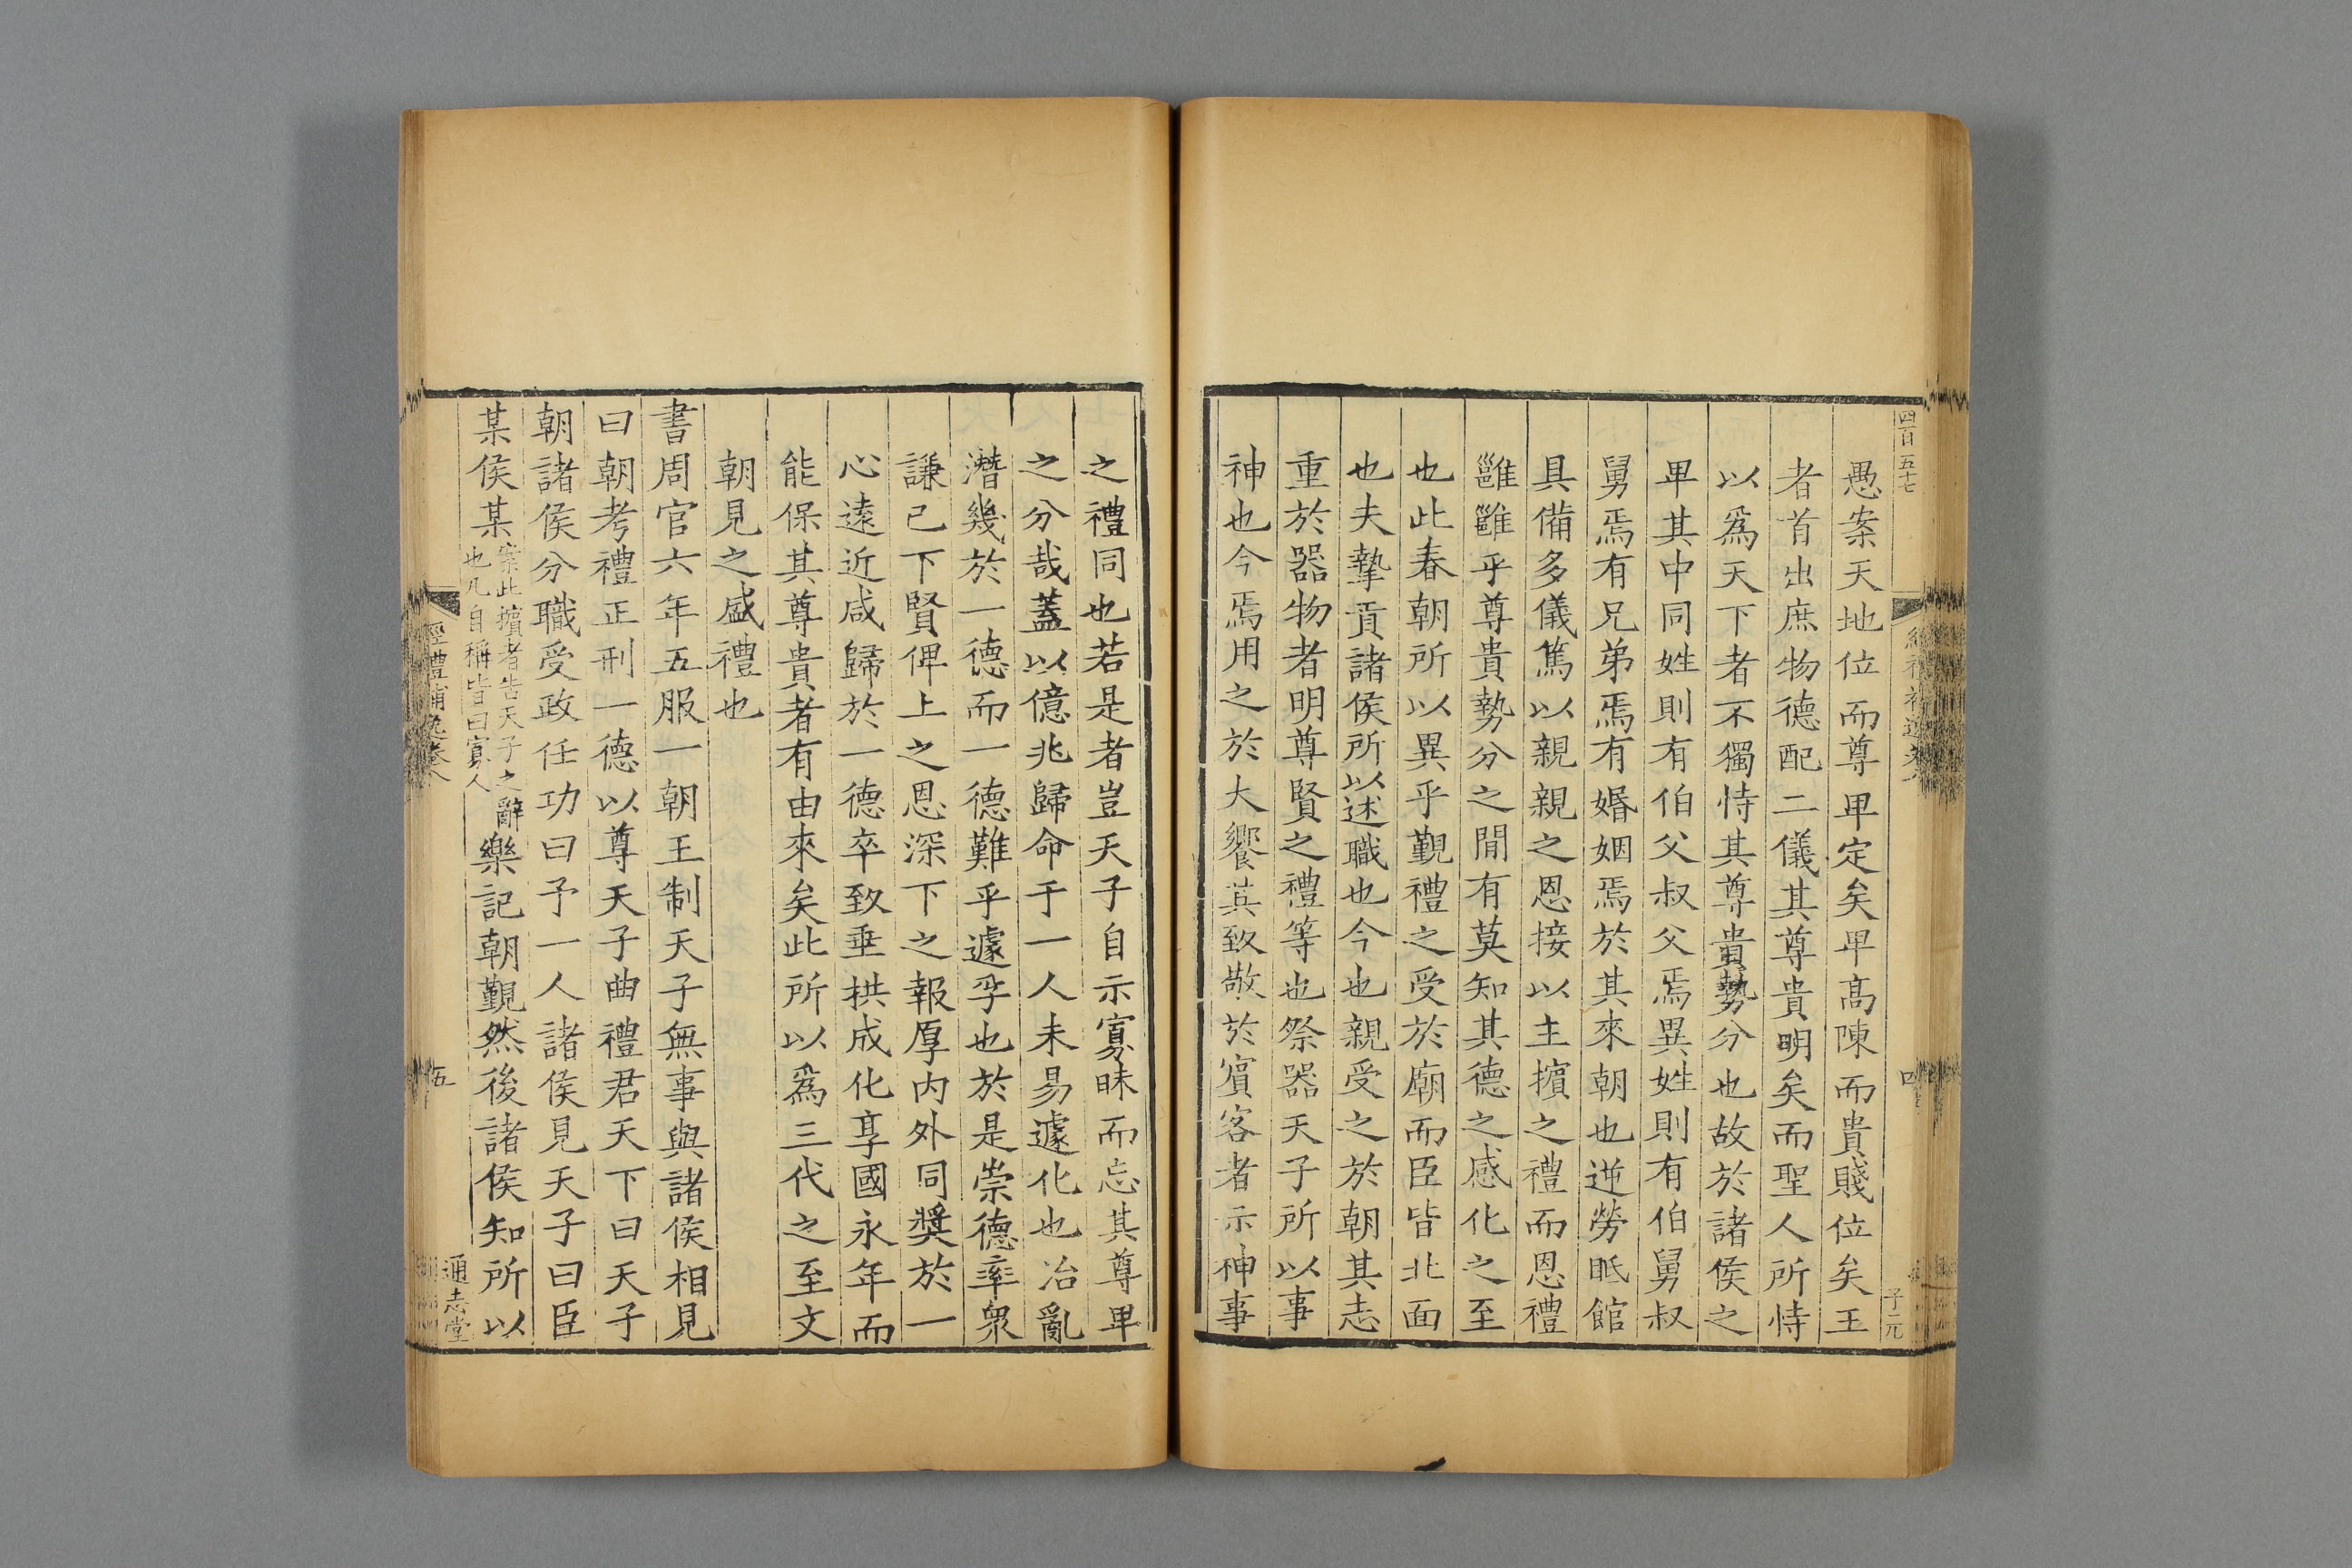 四百五十七
經禮補逸卷八
四
子元
愚案天地位而尊卑定矣卑髙陳而貴賤位矣王
者首出庶物德配二儀其尊貴明矣而聖人所恃
以爲天下者不獨恃其尊貴勢分也故於諸侯之
卑其中同姓則有伯父叔父焉異姓則有伯舅叔
舅焉有兄弟焉有婚姻焉於其來朝也逆勞眂館
具備多儀篤以親親之恩接以主擯之禮而恩禮
雝雝乎尊貴勢分之間有莫知其德之感化之至
也此春朝所以異乎覲禮之受於廟而臣皆北面
也夫摯貢諸侯所以述職也今也親受之於朝其志
重於器物者明尊賢之禮等也祭器天子所以事
神也今焉用之於大饗其致敬於賓客者示神事
之禮同也若是者豈天子自示寡昧而忘其尊卑
之分哉蓋以億兆歸命于一人未易遽化也治亂
潛幾於一德而一德難乎遽孚也於是崇德率衆
謙己下賢俾上之恩深下之報厚内外同奬於一
心遠近咸歸於一德卒致垂拱成化享國永年而
能保其尊貴者有由來矣此所以爲三代之至文
朝見之盛禮也
書周官六年五服一朝王制天子無事與諸侯相見
曰朝考禮正刑一德以尊天子曲禮君天下曰天子
朝諸侯分職受政任功曰予一人諸侯見天子曰臣
某侯某案此擯者告天子之辭也凡自稱皆曰寡人樂記朝覲然後諸侯知所以
經禮補逸卷八
五
通志堂